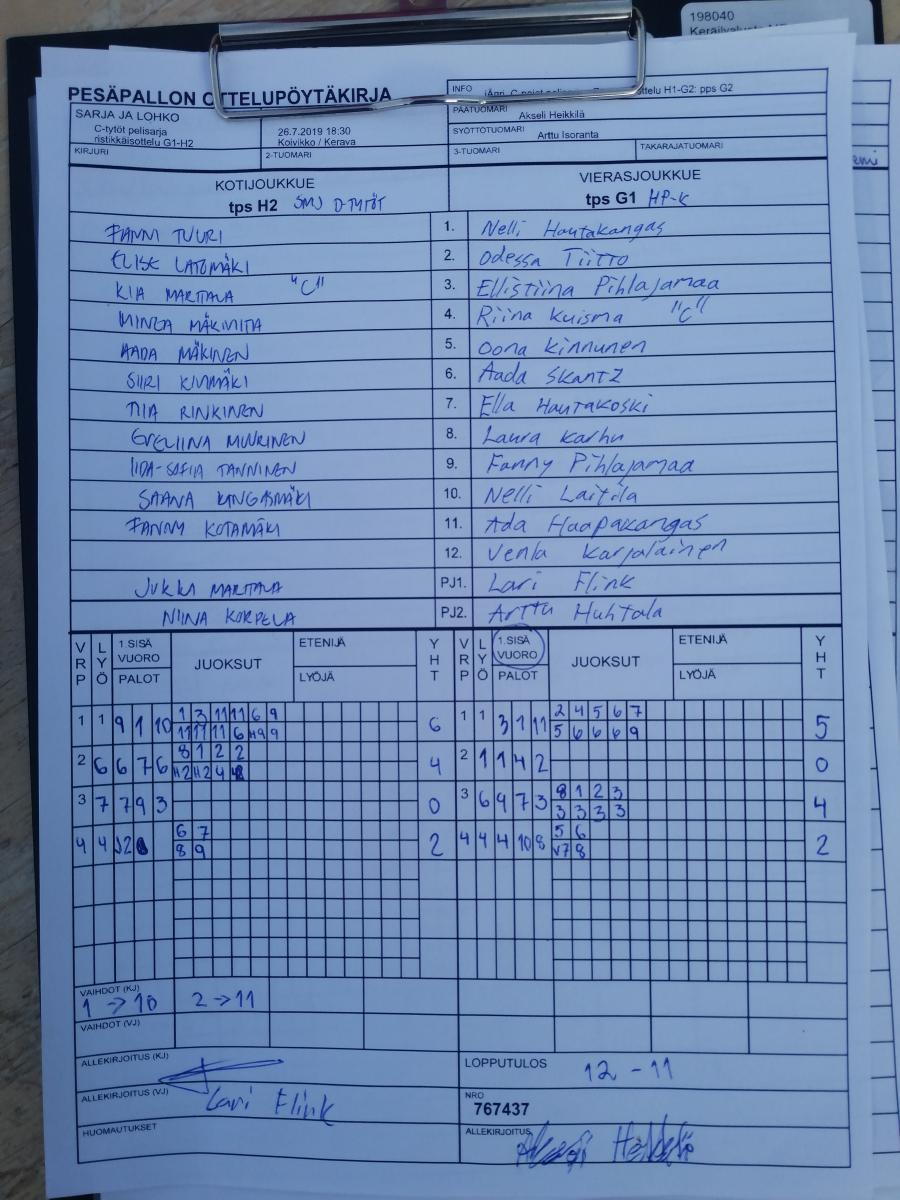 198040
PESÄPALLON OTTELUPÖYTÄKIRJA
INFO
ottelu H1-G2: pps G2
SARJA JA LOHKO
C-tytöt pelisarja
ristikkäisottelu G1-H2
26.7.2019 18:30
Koivikko / Kerava
PÄÄTUOMARI Akseli Heikkilä
SYÖTTÖTUOMARI Arttu Isoranta
KIRJURI 2-TUOMARI 3-TUOMARI TAKARAJATUOMARI
KOTIJOUKKUE VIERASJOUKKUE
tps H2 SMJ D-TYTÖT tps G1 HP-K
FANNI TUURI 1. Nelli Hautakangas
ELISE LATOMÄKI 2. Odessa Tiitto
KIA MARTTALA "C" 3. Ellistiina Pihlajamaa
MINEA 4. Riina Kuisma "C"
AADA MÄKINEN 5. Oona Kinnunen
SIIRI KIVIMÄKI 6. Aada Skantz
TIIA RINKINEN 7. Ella Hautakoski
EVELIINA MUURINEN 8. Laura Karhu
IIDA-SOFIA TANNINEN 9. Fanny Pihlajamaa
SAANA KANGASMÄKI 10. Nelli Laitila
FANNY KOTAMÄKI 11. Ada Haapakangas
12. Venla Karjalainen
JUKKA MARTTALA PJ1. Lari Flink
NIINA KORPELA PJ2. Arttu Huhtala
VRP LYÖ 1.SISÄ VUORO PALOT JUOKSUT ETENIJÄ LYÖJÄ YHT VRP LYÖ 1.SISÄ VUORO PALOT JUOKSUT ETENIJÄ LYÖJÄ YHT
1 1 9 1 10 1 3 11 11 6 9 6 1 1 3 1 11 2 4 5 6 7 5
11 11 11 6 H9 9 5 6 6 6 9
2 6 6 7 6 8 1 2 2 4 2 1 1 4 2 0
H2 H2 4
3 7 7 9 3 0 3 6 9 7 3 8 1 2 3 4
3 3 3 3
4 4 6 7 2 4 4 4 10 8 5 6 2
8 9 V7 8
VAIHDOT (KJ)
1 → 10 2 → 11
VAIHDOT (VJ)
ALLEKIRJOITUS (KJ) LOPPUTULOS 12 - 11
ALLEKIRJOITUS (VJ) Lari Flink NRO
767437
HUOMAUTUKSET ALLEKIRJOITUS